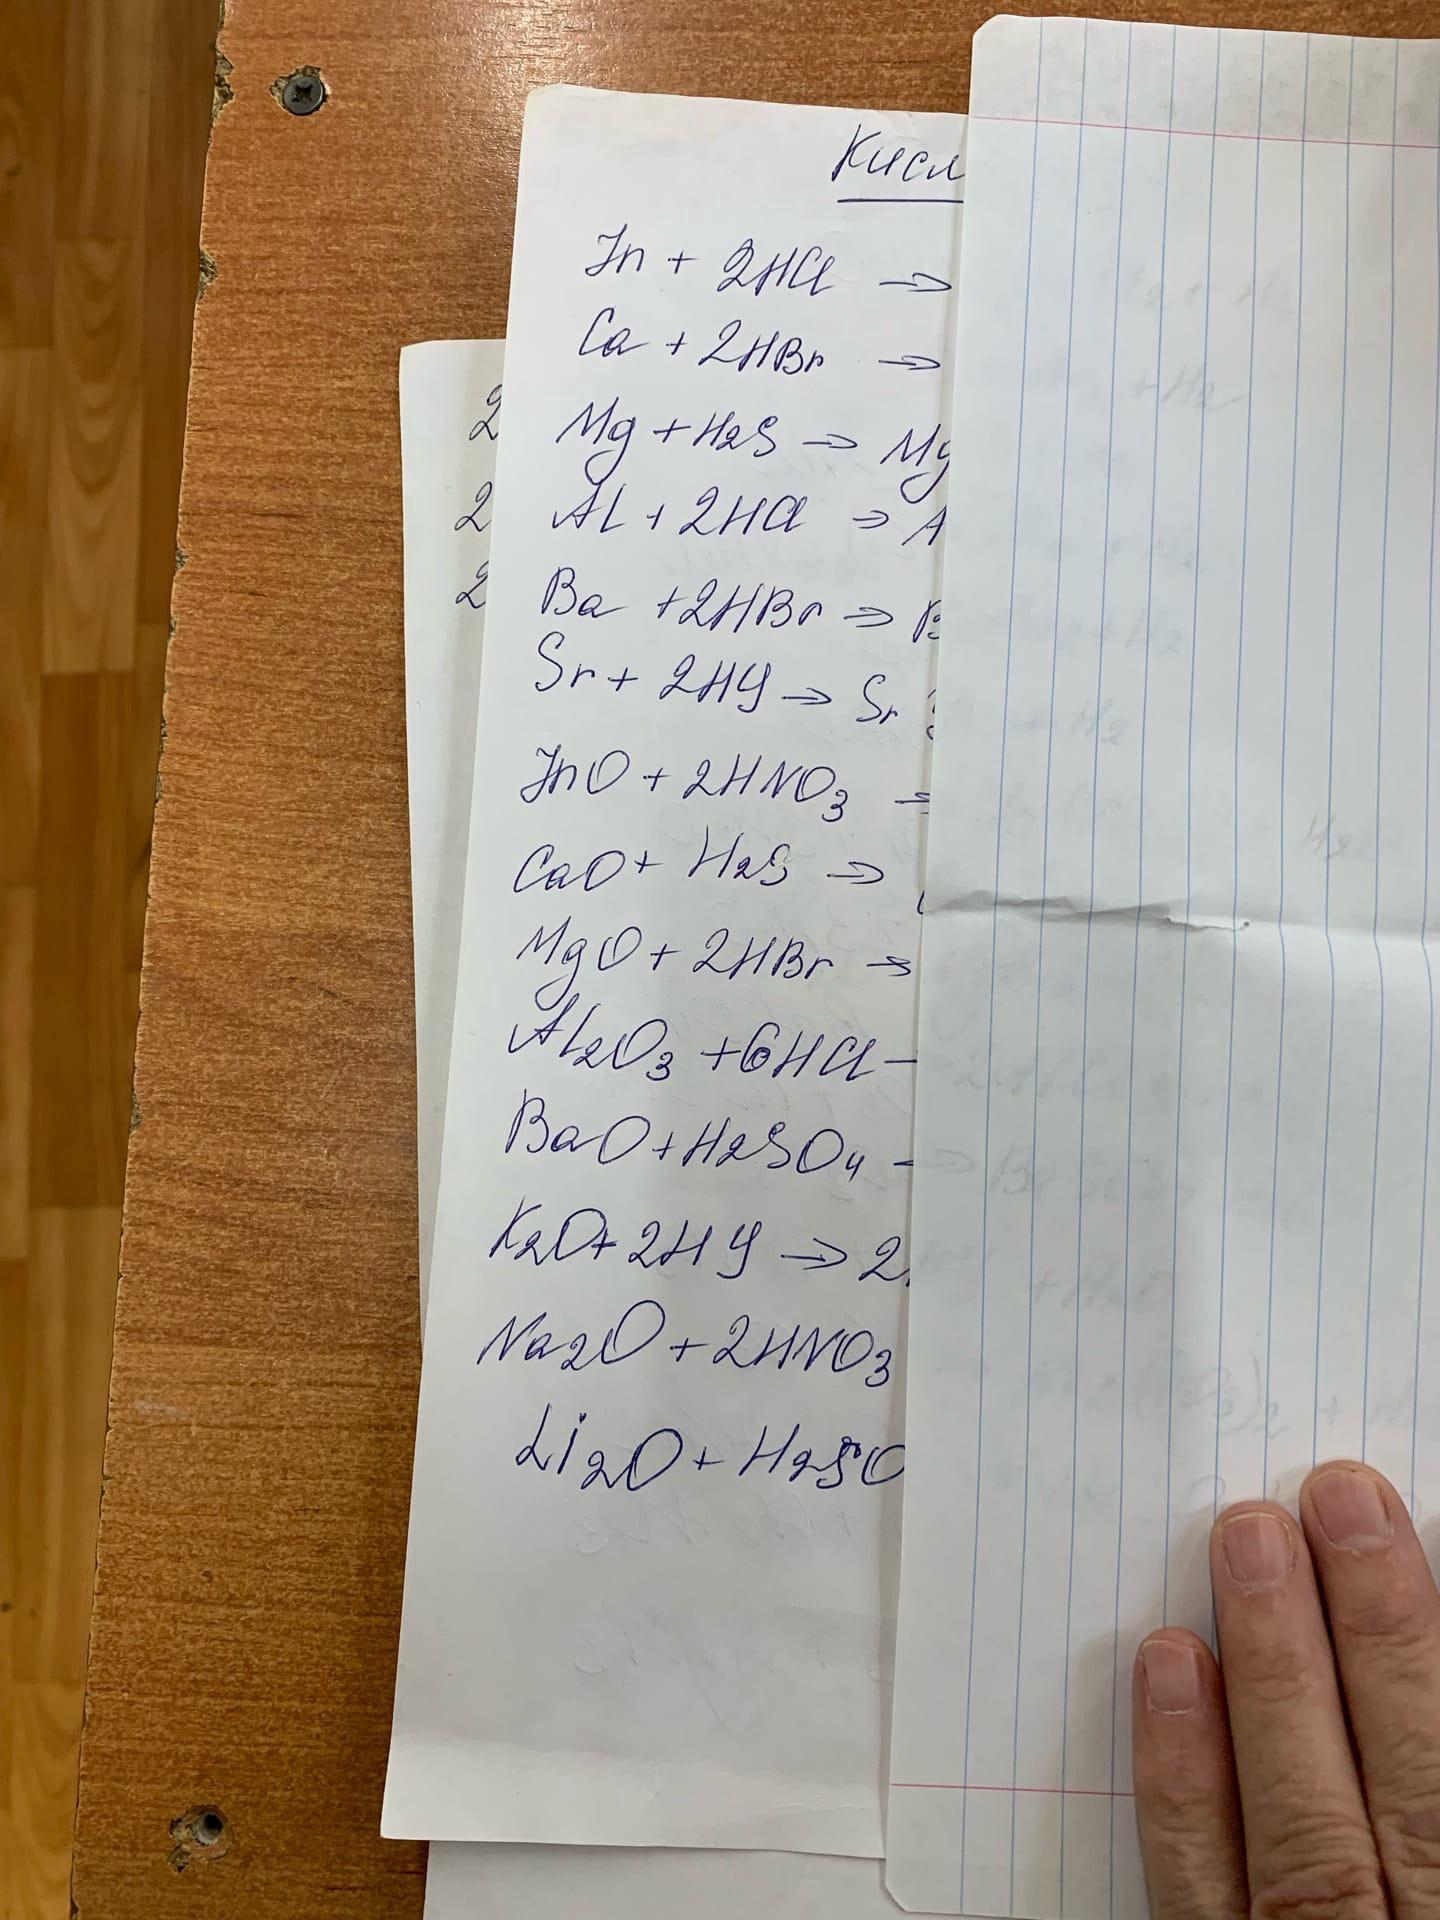 Кисл
Zn + 2HCl →
Ca + 2HBr →
Mg + H2S → Mg
Al + 2HCl → A
Ba + 2HBr → B
Sr + 2HJ → Sr
ZnO + 2HNO3 →
CaO + H2S →
MgO + 2HBr →
Al2O3 + 6HCl –
BaO + H2SO4 →
K2O + 2HJ → 2
Na2O + 2HNO3
Li2O + H2SO
2
2
2